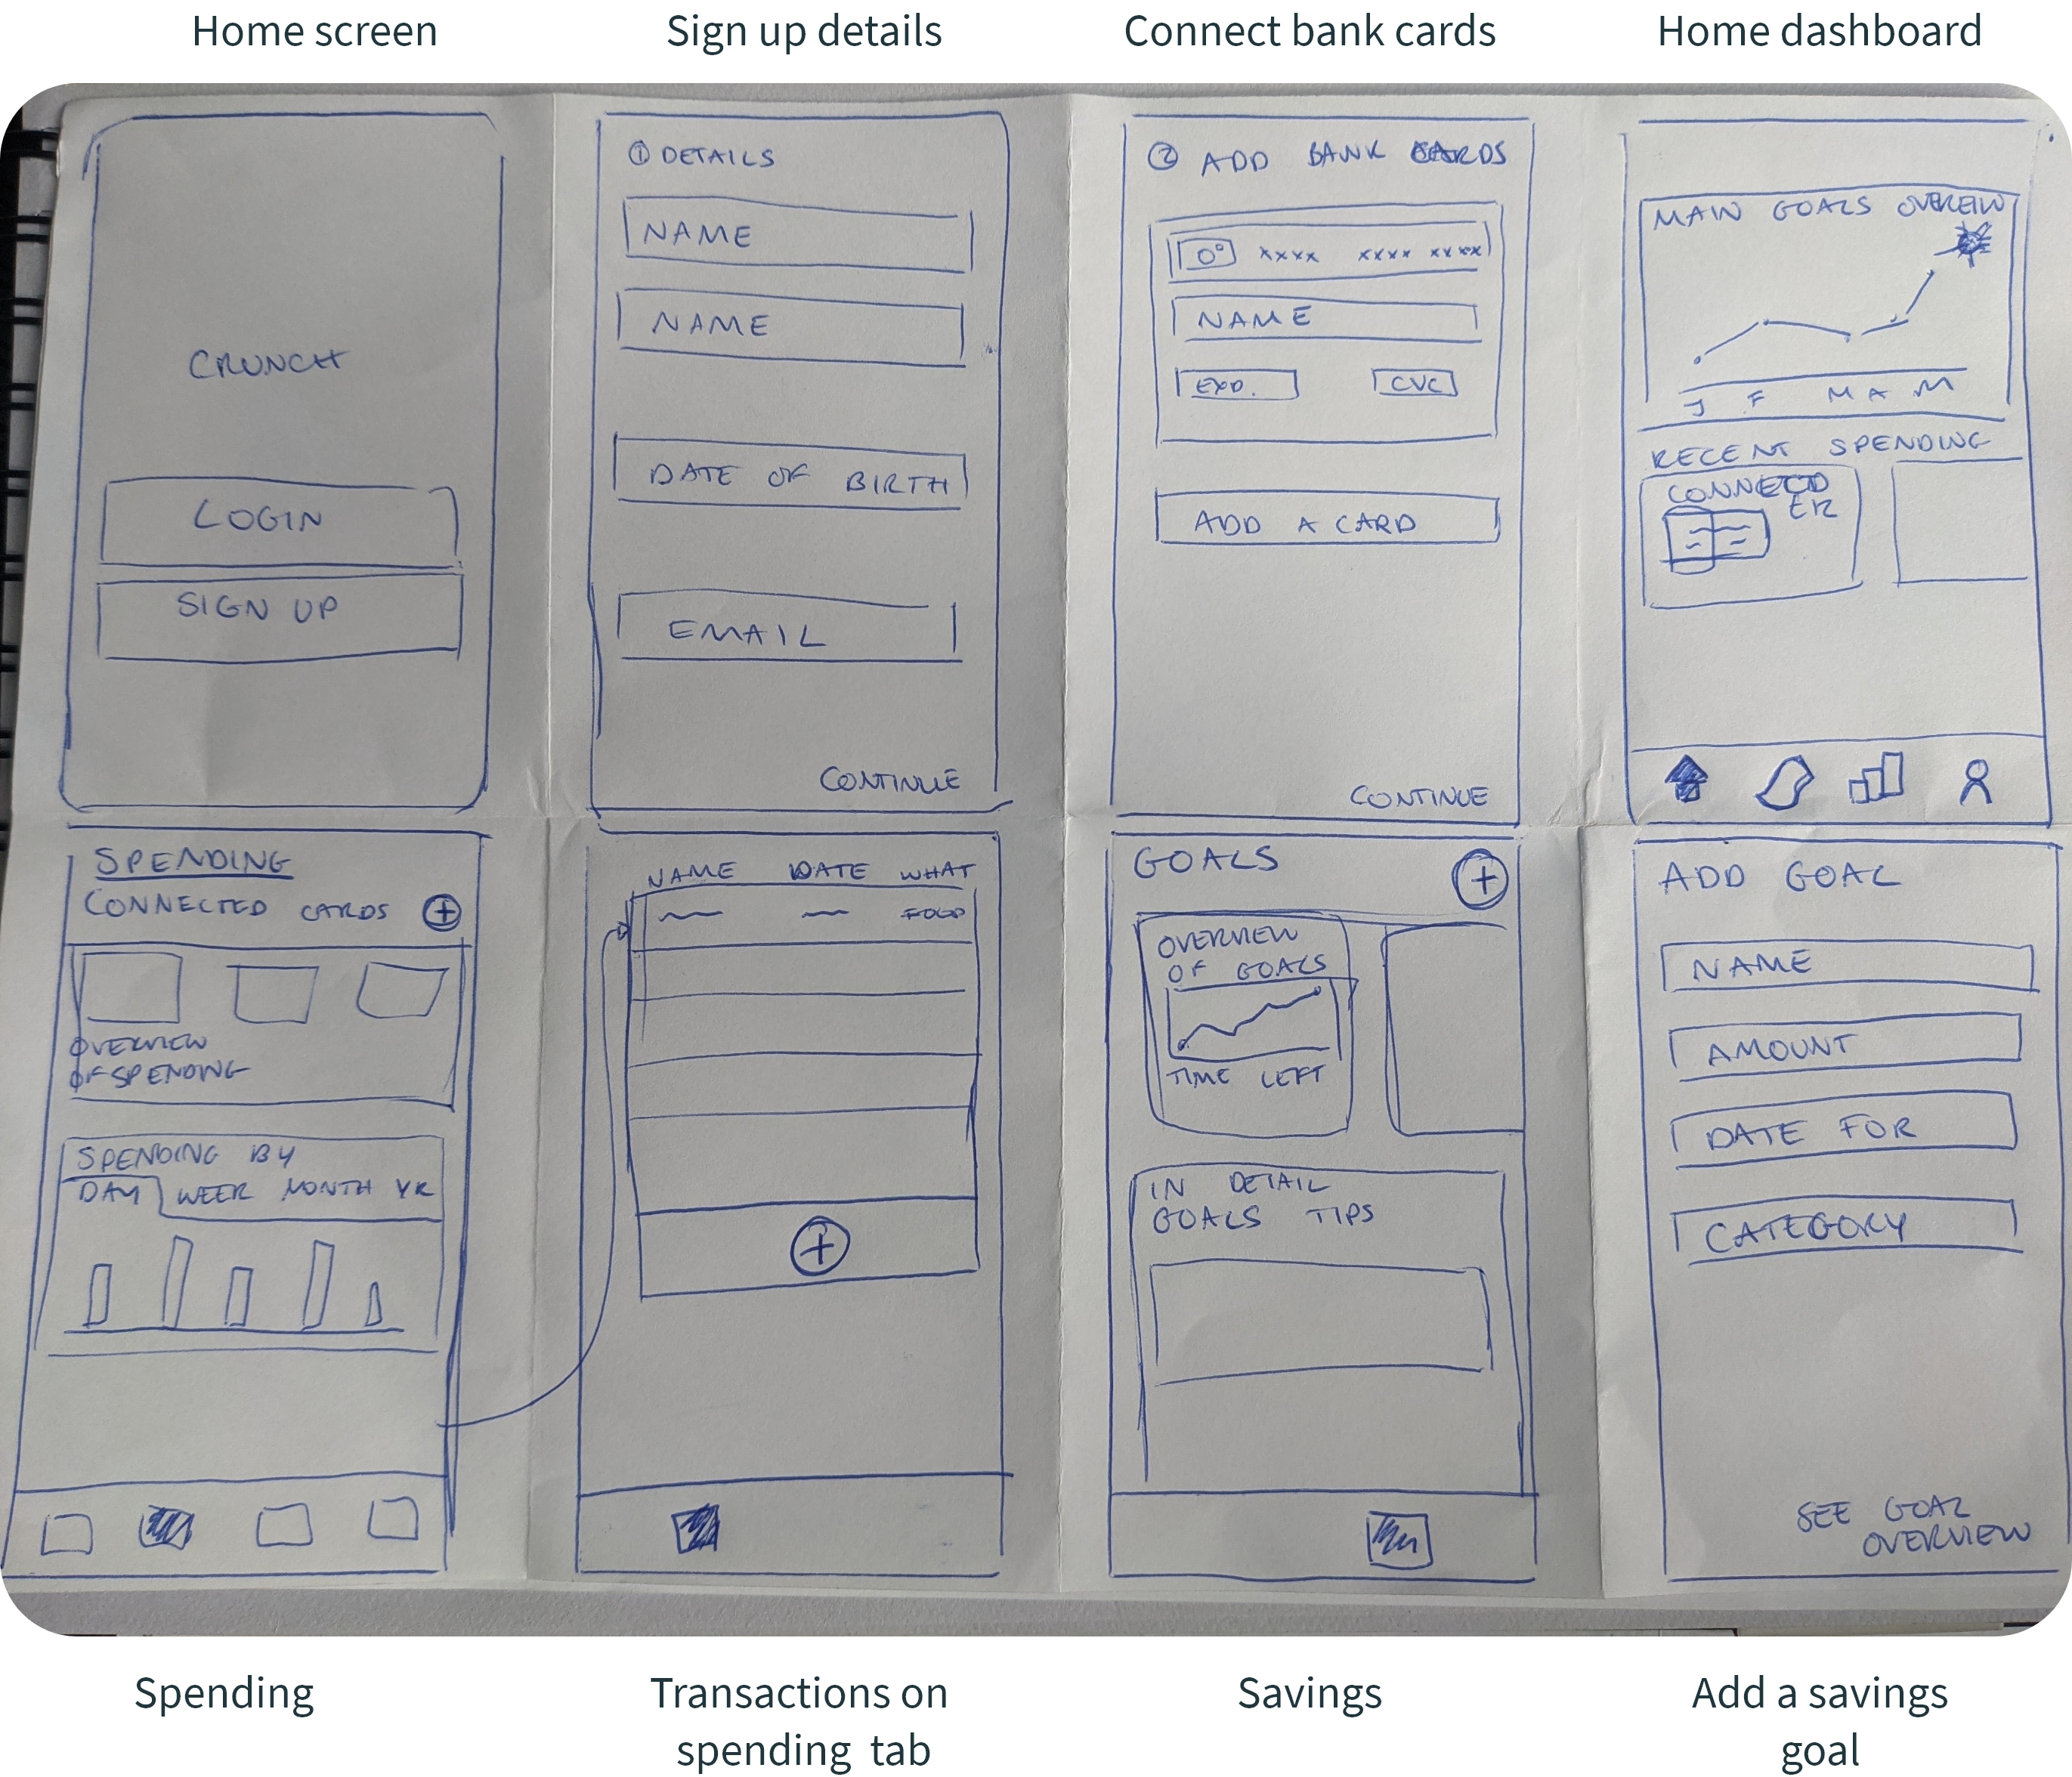 Home screen
Sign up details
Connect bank cards
Home dashboard
CRUNCH
LOGIN
SIGN UP
① DETAILS
NAME
NAME
DATE OF BIRTH
EMAIL
CONTINUE
② ADD BANK CARDS
xxxx xxxx xxxx
NAME
EXD.
CVC
ADD A CARD
CONTINUE
MAIN GOALS OVEREIW
J F M A M
RECENT SPENDING
SPENDING
CONNECTED CARDS
OVERVIEW
OF SPENDING
SPENDING BY
DAY WEEK MONTH YR
NAME DATE WHAT
FOOD
GOALS
OVERVIEW
OF GOALS
TIME LEFT
IN DETAIL
GOALS TIPS
ADD GOAL
NAME
AMOUNT
DATE FOR
CATEGORY
SEE GOAL
OVERVIEW
Spending
Transactions on
spending tab
Savings
Add a savings
goal